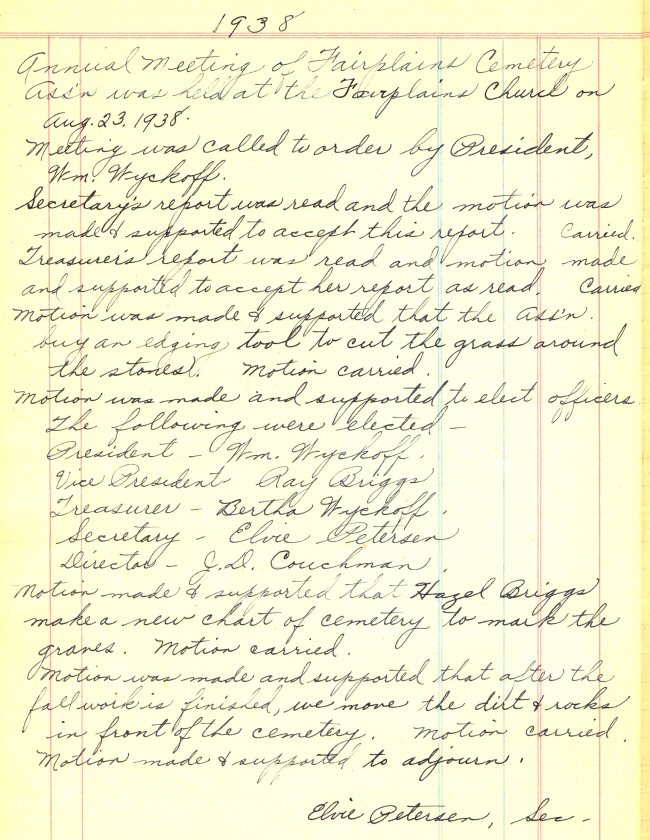 1938
Annual Meeting of Fairplains Cemetery
Ass'n was held at the Fairplains Church on
Aug. 23. 1938.
Meeting was called to order by President,
Wm. Wyckoff.
Secretary's report was read and the motion was
made & supported to accept this report. Carried.
Treasurer's report was read and motion made
and supported to accept her report as read. Carried
Motion was made & supported that the Ass'n.
buy an edging tool to cut the grass around
the stones. Motion carried.
Motion was made and supported to elect officers.
The following were elected –
President – Wm. Wyckoff.
Vice President – Ray Briggs
Treasurer – Bertha Wyckoff.
Secretary – Elvie Petersen
Director – J.D. Couchman.
Motion made & supported that Hazel Briggs
make a new chart of cemetery to mark the
graves. Motion carried.
Motion was made and supported that after the
fall work is finished, we move the dirt & rocks
in front of the cemetery. Motion carried.
Motion made & supported to adjourn.
Elvie Petersen, Sec –